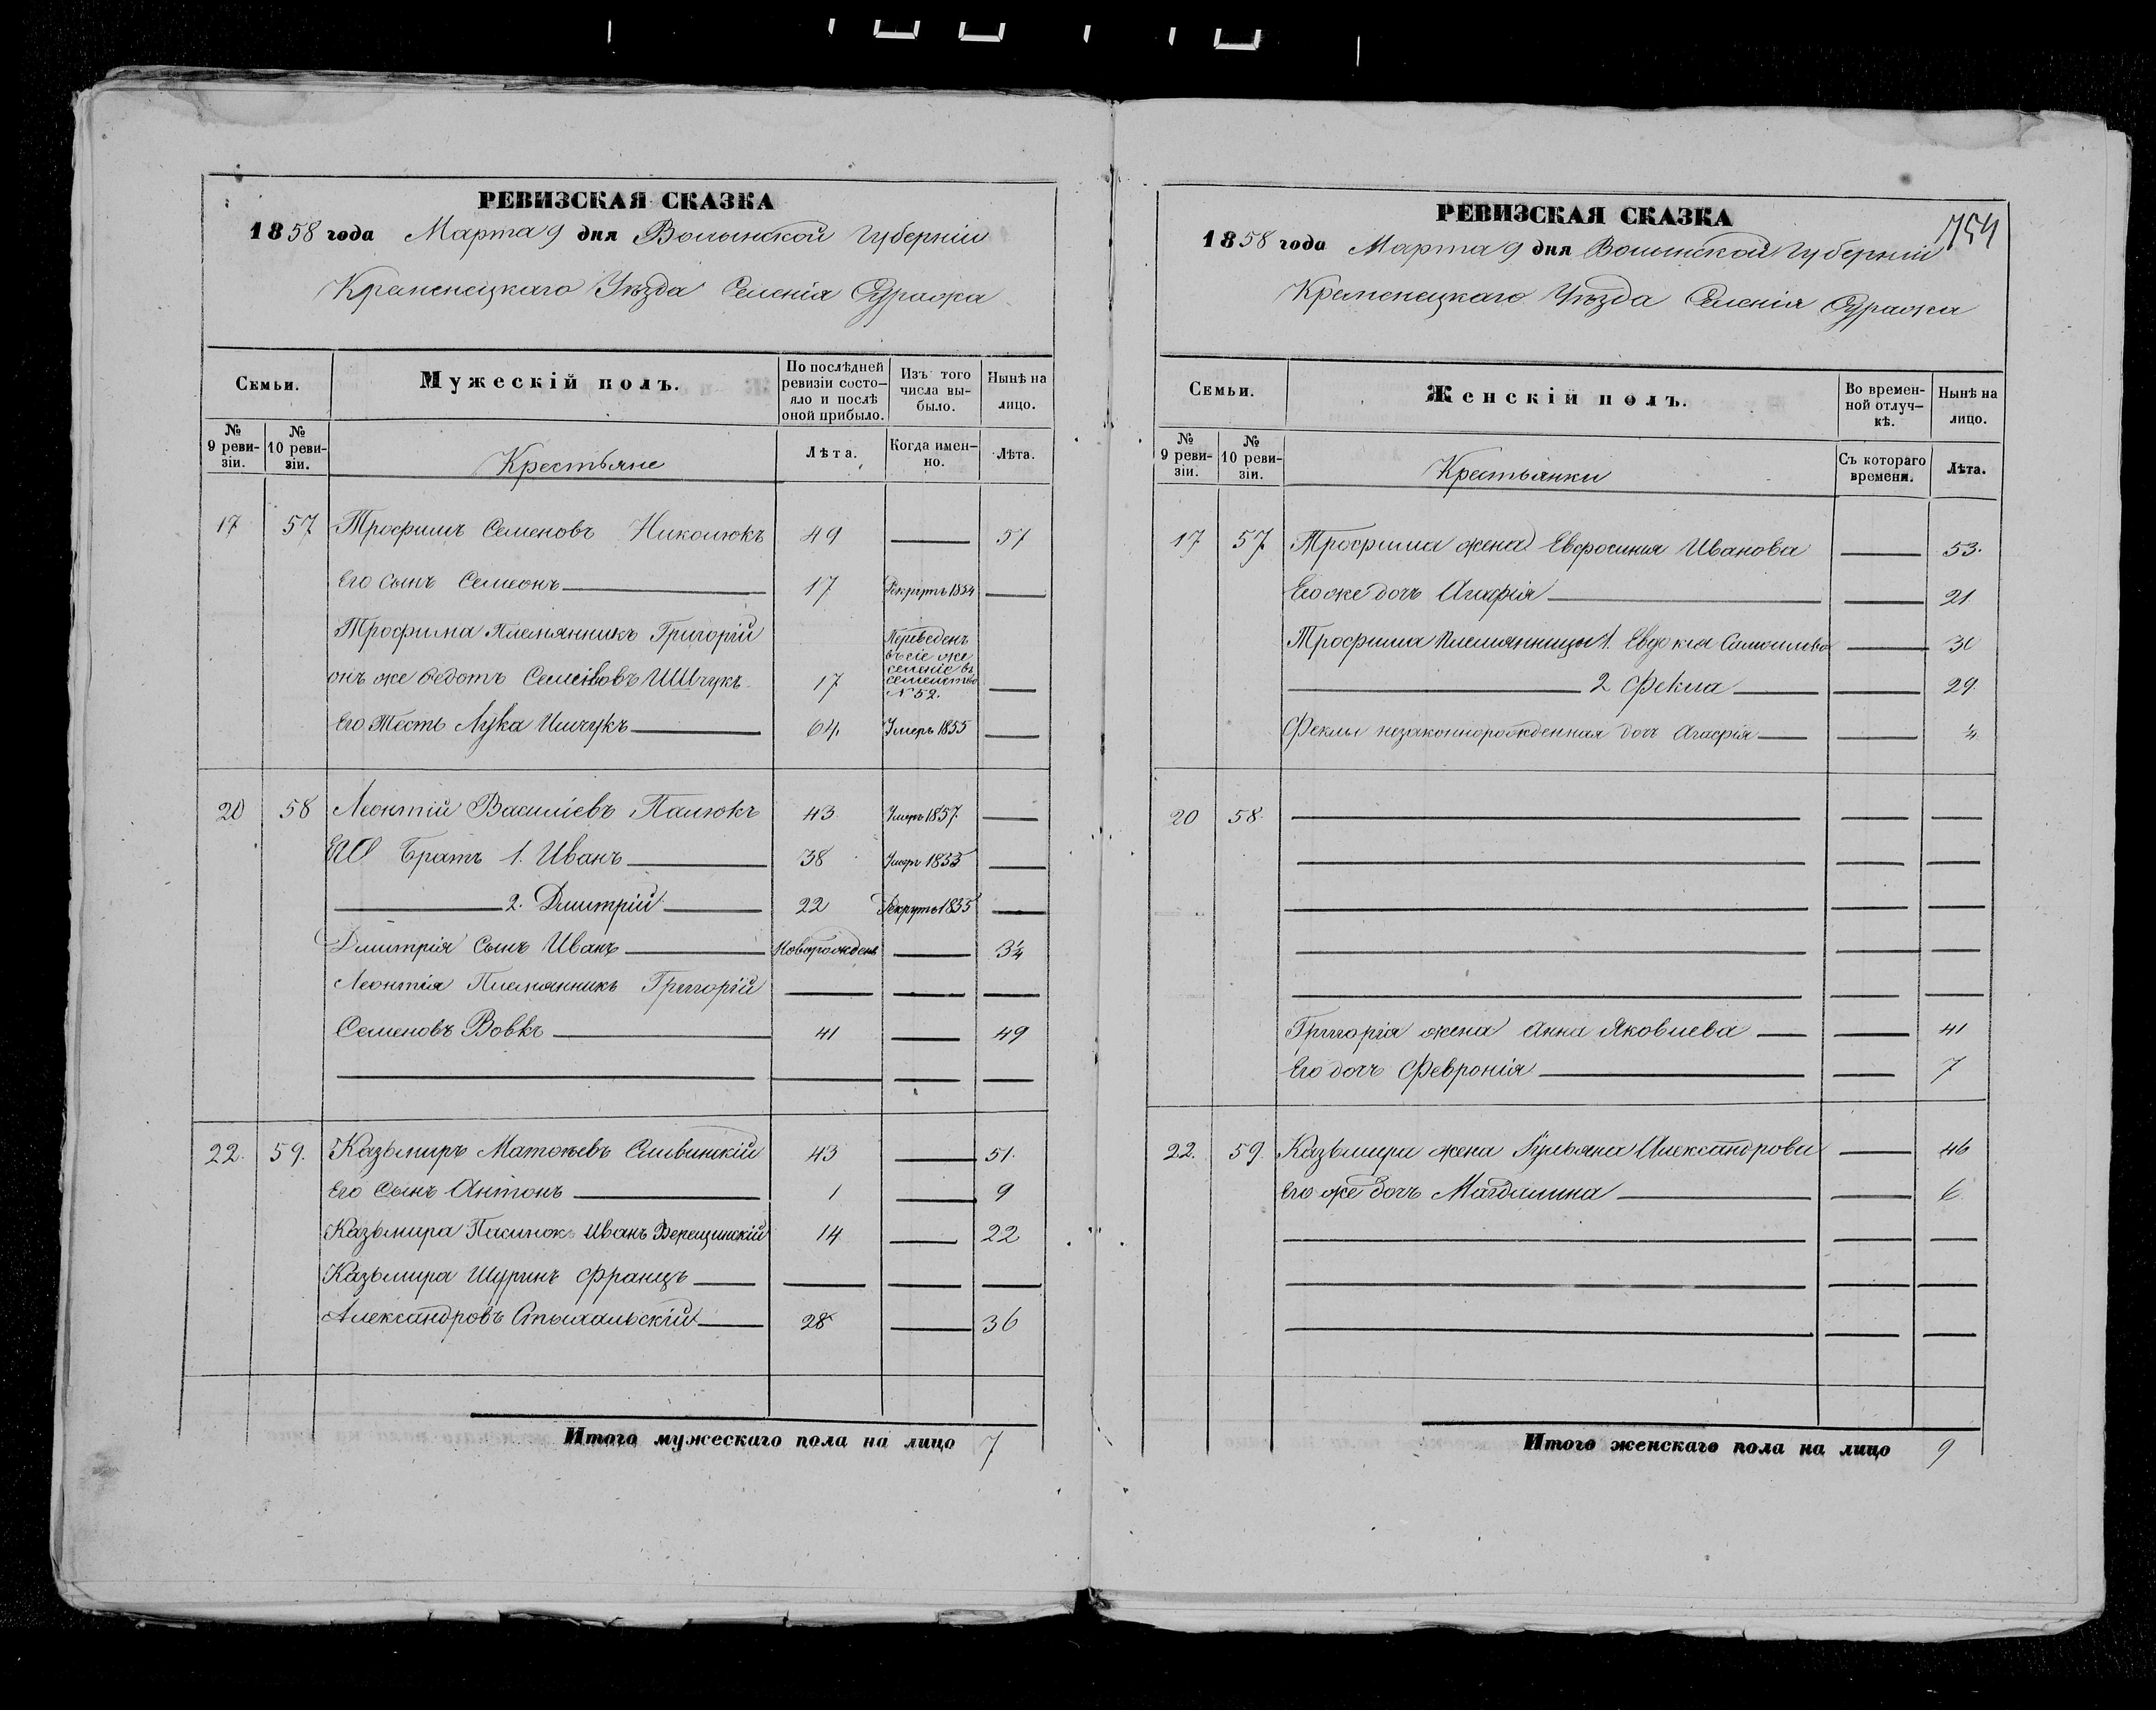 РЕВИЗСКАЯ СКАЗКА
1858 года Марта 9 дня Волынской Губерніи
Кременецкаго Уѣзда Селенія Суража
Семьи.
Мужескій полъ.
По послѣдней ревизіи состо-
яло и послѣ
оной прибыло.
Изъ того
числа вы-
было.
Нынѣ на
лицо.
№
9 реви-
зіи.
№
10 реви-
зіи.
Крестьяне
Лѣта.
Когда имен-
но.
Лѣта.
17 57 Трофимъ Семеновъ Николюкъ 49 — 57
Его сынъ Семеонъ — 17 Рекрутъ 1854 —
Трофима Племянникъ Григорій
Переведенъ
въ сіе же
селеніе въ
семейство
№ 52.
онъ же Федотъ Семеновъ 17 —
Его Тесть Лука Ильчукъ — 64 Умеръ 1855 —
20 58 Леонтій Васильевъ Палюкъ 43 Умеръ 1857 —
Его Братъ 1. Иванъ — 38 Умеръ 1855 —
— 2. Дмитрій — 22 Рекрутъ 1855 —
Дмитрія Сынъ Иванъ — Новорожденъ — 3¼
Леонтія Племянникъ Григорій — — —
Семеновъ Вовкъ — 41 — 49
— — — —
22. 59. Казьмиръ Матвѣевъ Сливинскій 43 — 51.
Его Сынъ Антонъ — 1 — 9
Казьмира Пасинокъ Иванъ Верещинскій 14 — 22
Казьмира Шуринъ Францъ — — — —
Александровъ Стыхальскій — 28 — 36
Итого мужескаго пола на лицо 7
РЕВИЗСКАЯ СКАЗКА
754
1858 года Марта 9 дня Волынской Губерніи
Кременецкаго Уѣзда Селенія Суража
Семьи.
Женскій полъ.
Во времен-
ной отлуч-
кѣ.
Нынѣ на
лицо.
№
9 реви-
зіи.
№
10 реви-
зіи.
Крестьянки
Съ котораго
времени.
Лѣта.
17 57 Трофима жена Евфосинія Иванова — 53.
Его же дочь Агафія — — 21
Трофима племянницы 1. Евдокія Самоилова — 30
— 2 Фекла — — 29.
Феклы незаконнорожденная дочь Агафія — — ¼
20 58. — — —
— — —
— — —
— — —
— — —
Григорія жена Анна Яковлева — — 41
Его дочь Февронія — — 7
22. 59. Казьмира жена Гульяна Александрова — 46
Его же дочь Магдалина — — 6
— — —
— — —
— — —
Итого женскаго пола на лицо 9